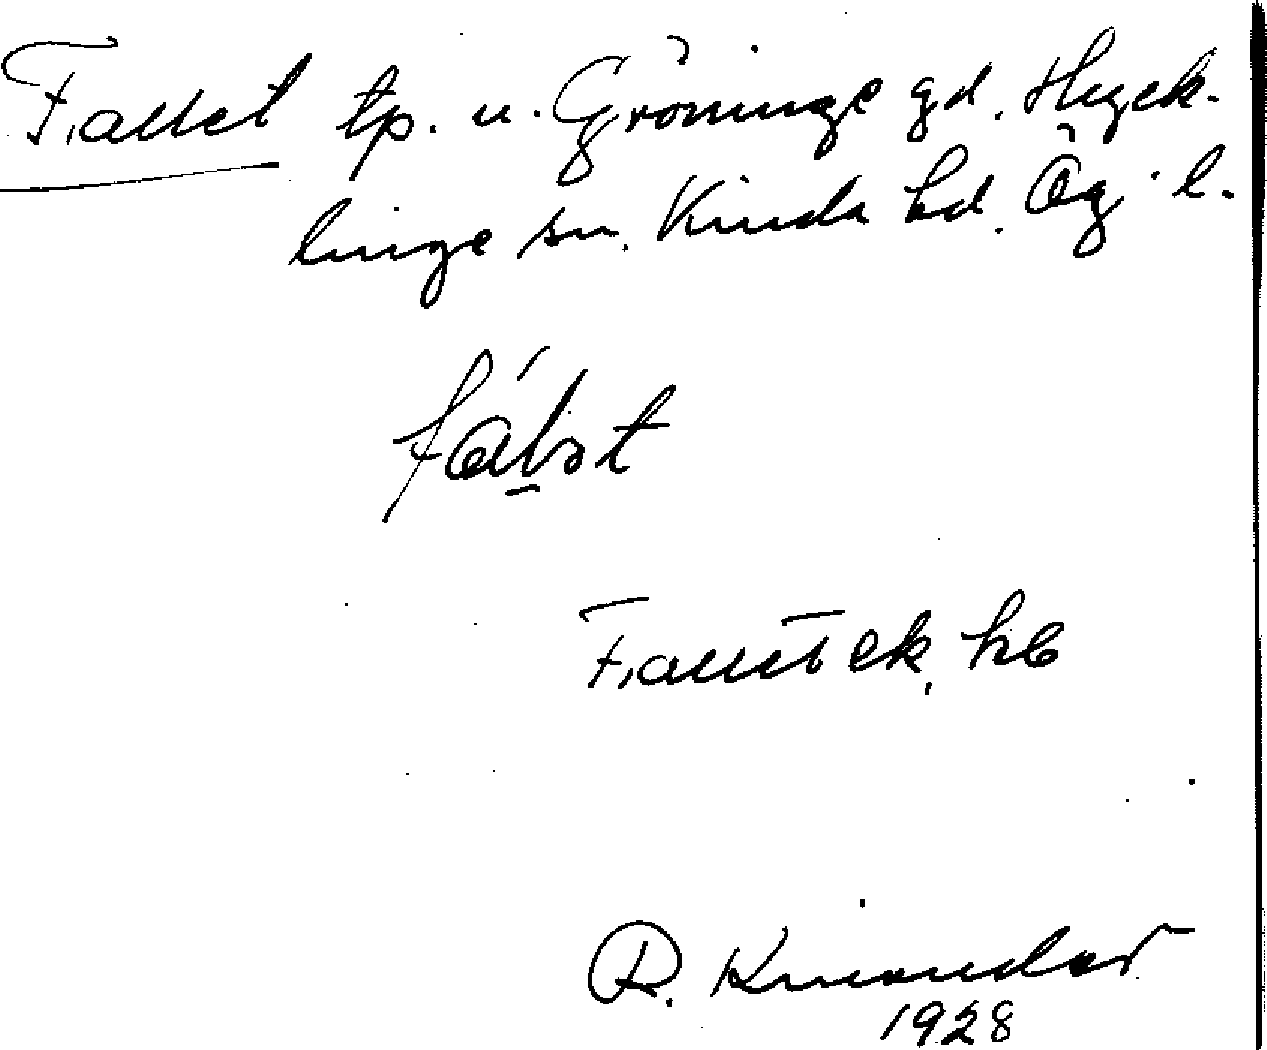 Fallet tp. u. Gröninge gd. Hyck-
linge sn. Kinda hd. Ög. l.
Fallet ek. hb
R. Kinander
1928